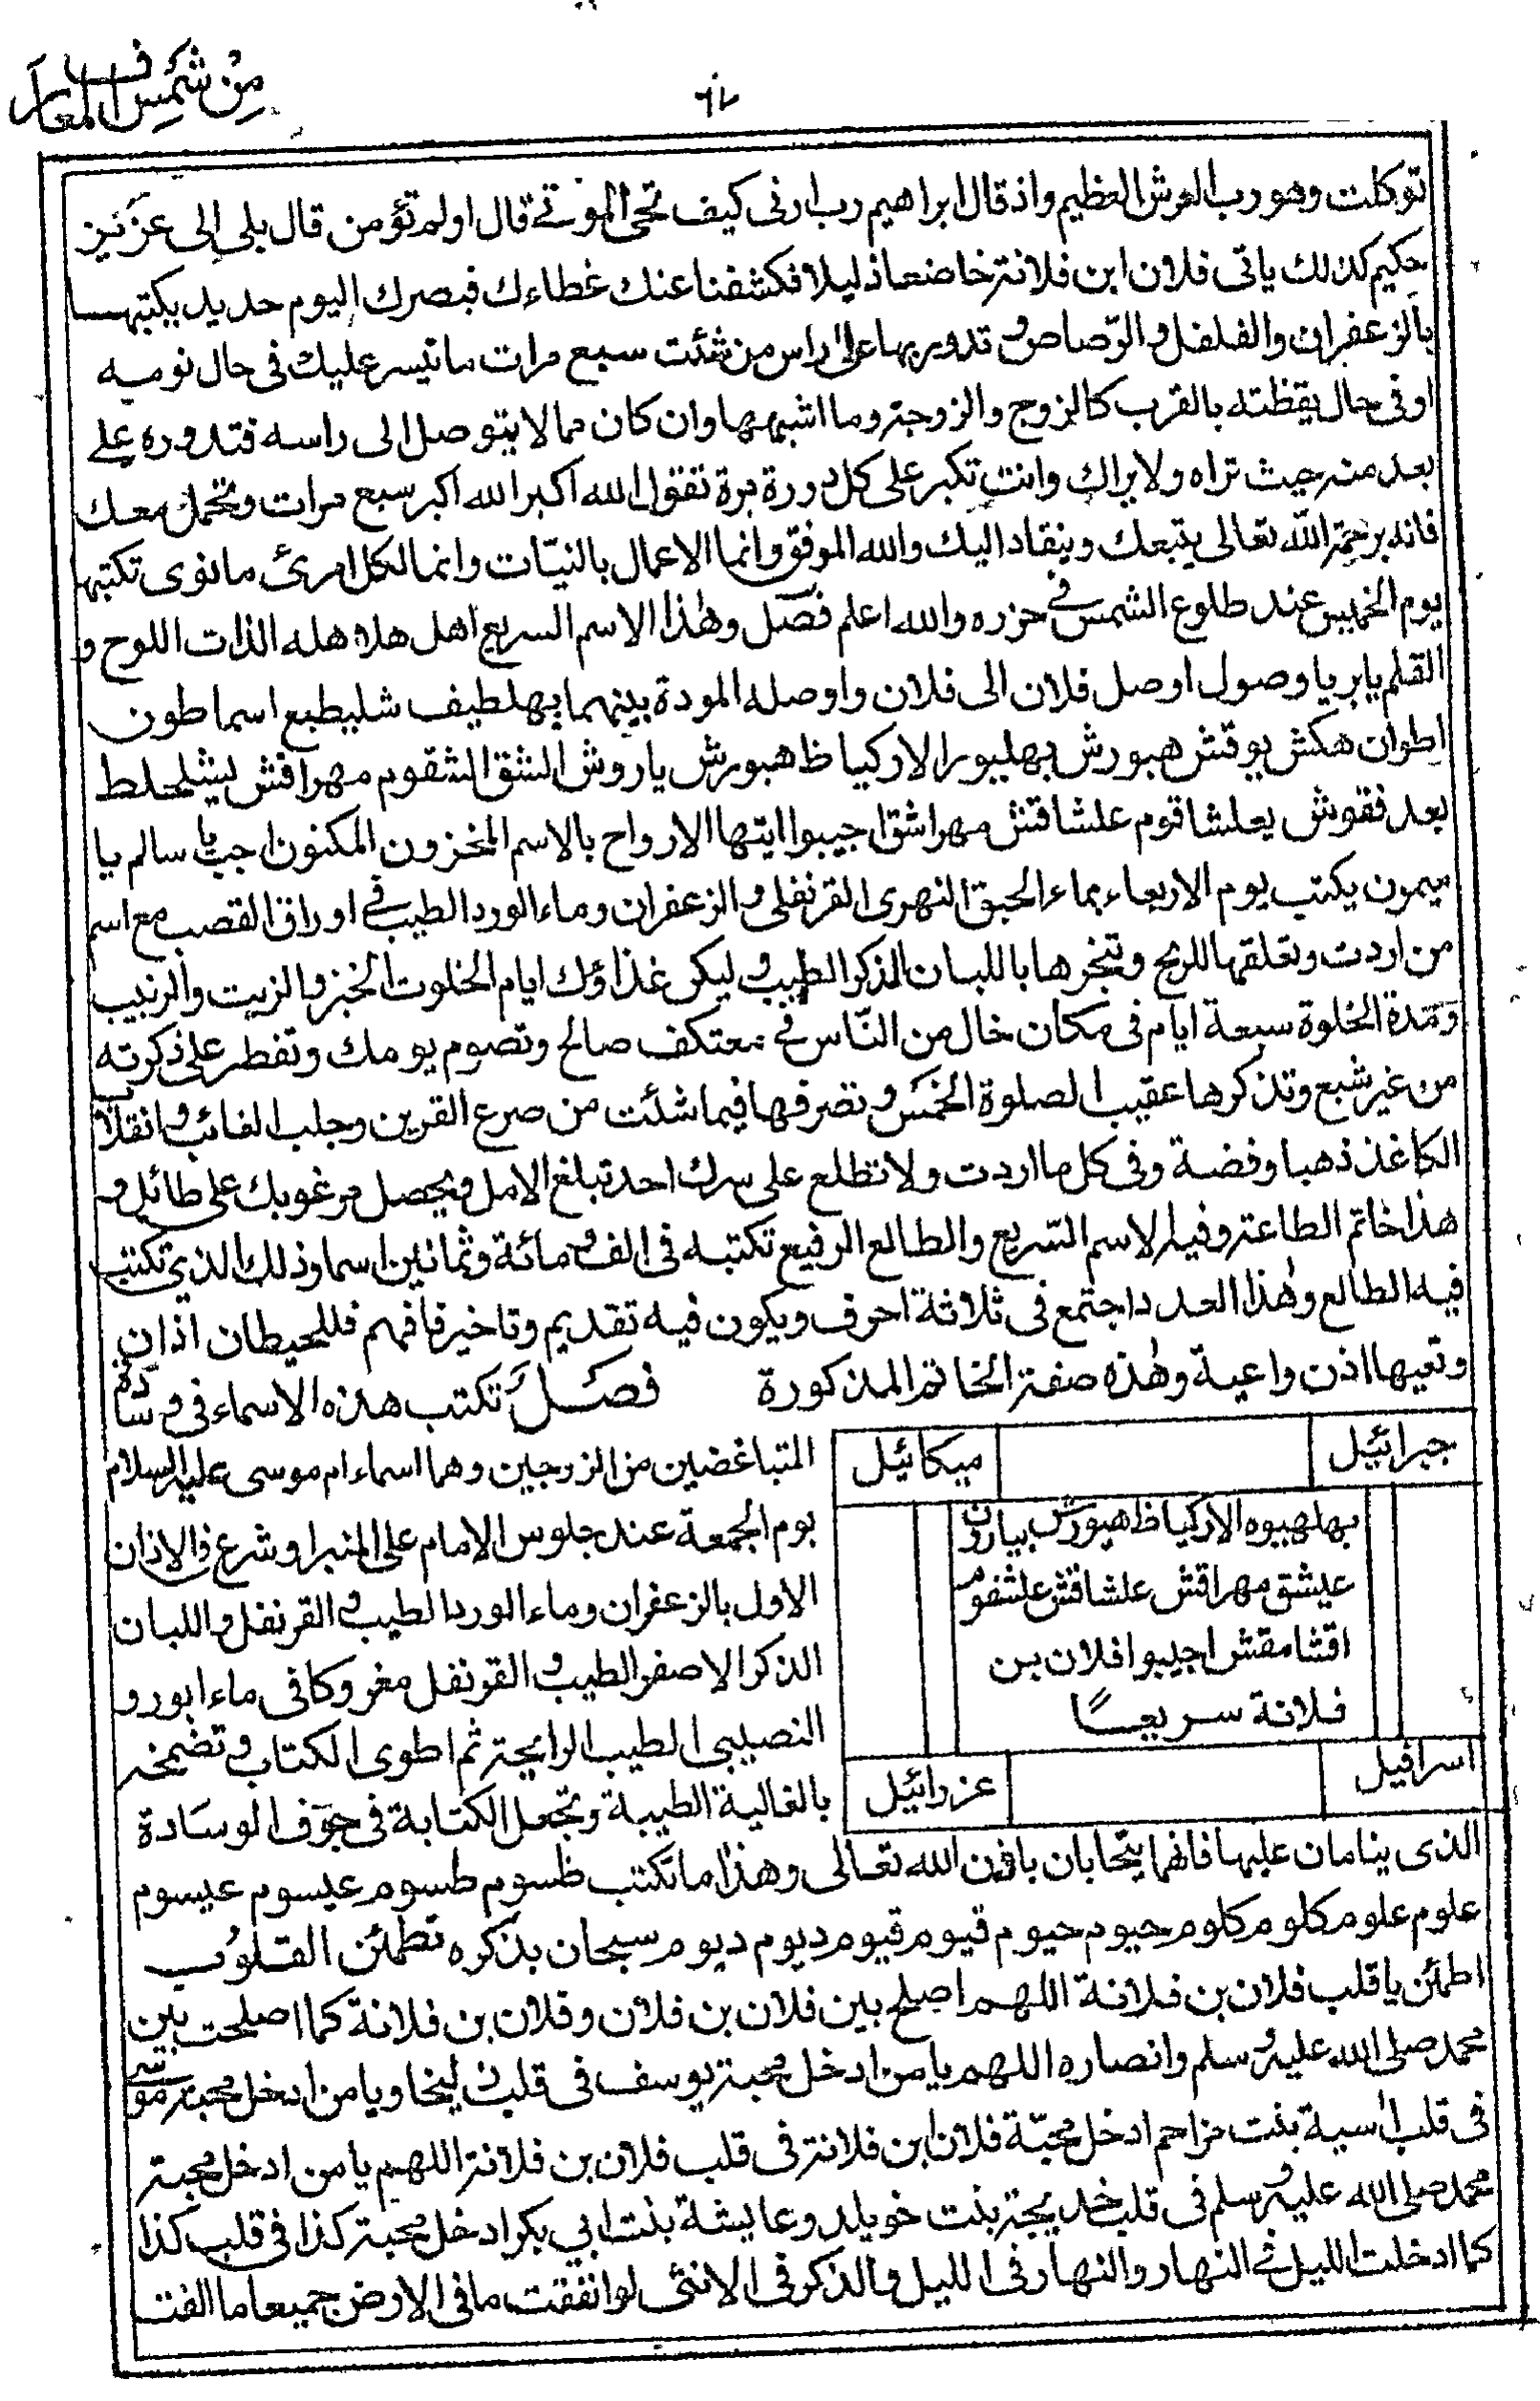 من شمس المعارف
٦٢
توكلت وهو رب العرش العظيم واذ قال ابراهيم رب ارنى كيف تحى الموتى قال اولم تؤمن قال بلى الى عزيز
حكيم كذلك ياتى فلان ابن فلانة خاضعا ذليلا فكشفنا عنك غطاءك فبصرك اليوم حديد يكتبها
بالزعفران والفلفل والرّصاص و تدور بها على راس من شئت سبع مرات ما تيسر عليك فى حال نومه
او فى حال يقظته بالقرب كالزوج والزوجة وما اشبهها وان كان مما لا يتوصل الى راسه فتدوره على
بعد منه حيث تراه ولا يراك وانت تكبر على كل دورة مرة تقول الله اكبر الله اكبر سبع مرات وتحمل معك
فانه برحمة الله تعالى يتبعك وينقاد اليك والله الموفق وانما الاعمال بالنيّات وانما لكل امرئ ما نوى تكتبها
يوم الخميس عند طلوع الشمس فى حزره والله اعلم فصل وهذا الاسم السريع اهل هلاه هله الذات اللوح و
القلم يا بر يا وصول اوصل فلان الى فلان واوصله المودة بينهما بهلطيف شليطبع اسماطون
اطوان هكش يوقش هبورش بهليبورا لاركياظ هبورش ياروش الشق الشقوم مهراقش ليشلحلط
بعد فقوش يعلشاقوم علشاقش مهراشق اجيبوا ايتها الارواح بالاسم المخزون المكنون اجب يا سالم يا
ميمون يكتب يوم الاربعاء بماء الحبق النهرى القرنفلى والزعفران وماء الورد الطيب فى اوراق القصب مع اسم
من اردت وتعلقها للريح وتبخرها باللبان الذكر الطيب و ليكن غذاؤك ايام الخلوت الخبز والزيت والزبيب
ومدة الخلوة سبعة ايام فى مكان خال من النّاس فى معتكف صالح وتصوم يومك وتفطر على ذكرته
من غير شبع وتذكرها عقيب الصلوة الخمس و تصرفها فيما شئت من صرع القرين وجلب الغائب وانقلاب
الكاغذ ذهبا وفضة وفى كل ما اردت ولا تطلع على سرك احد تبلغ الامل ويحصل مرغوبك على طائل و
هذا خاتم الطاعة وفيه الاسم السّريع والطالع الرفيع تكتبه فى الف ومائة وثمانين اسما وذلك الذى تكتب
فيه الطالع وهذا العدد اجتمع فى ثلاثة احرف ويكون فيه تقديم وتاخير فافهم فللحيطان اذان
وتعيها اذن واعية وهذه صفة الخاتم المذكورة فصل تكتب هذه الاسماء فى وسادة
المتباغضين من الزوجين وهما اسماء ام موسى عليه السلام
يوم الجمعة عند جلوس الامام على المنبر او شرع فى الاذان
الاول بالزعفران وماء الورد الطيب و القرنفل واللبان
الذكر الاصفر الطيب و القرنفل مغروكا فى ماء ابورو
النصيبى الطيب الرايحة ثم اطوى الكتاب و تضمخه
بالغالية الطيبة وتجعل الكتابة فى جوف الوسادة
جبرائيل
ميكائيل
بهلهبوه الاركياظ هبورش بيارون
عيشق مهراقش علشاقش علشقوم
اقشامقش اجيبوا فلان بن
فلانة سريعًا
اسرافيل
عزرائيل
الذى ينامان عليها فانهما يتحابان باذن الله تعالى وهذا ما تكتب ظسوم طسوم عيسوم عيسوم
علوم علوم كلوم كلوم حيوم حيوم قيوم قيوم ديوم ديوم سبحان بذكره تطمئن القلوب
اطمئن يا قلب فلان بن فلانة اللهم اصلح بين فلان بن فلان وفلان بن فلانة كما اصلحت بين
محمد صلى الله عليه وسلم وانصاره اللهم يا من ادخل محبة يوسف فى قلب زليخا ويا من ادخل محبة موسى
فى قلب اسية بنت مزاحم ادخل محبّة فلان ابن فلانة فى قلب فلان بن فلانة اللهم يا من ادخل محبة
محمد صلى الله عليه وسلم فى قلب خديجة بنت خويلد وعايشة بنت ابي بكر ادخل محبة كذا فى قلب كذا
كما ادخلت الليل فى النهار والنهار فى الليل والذكر فى الانثى لو انفقت ما فى الارض جميعا ما الفت